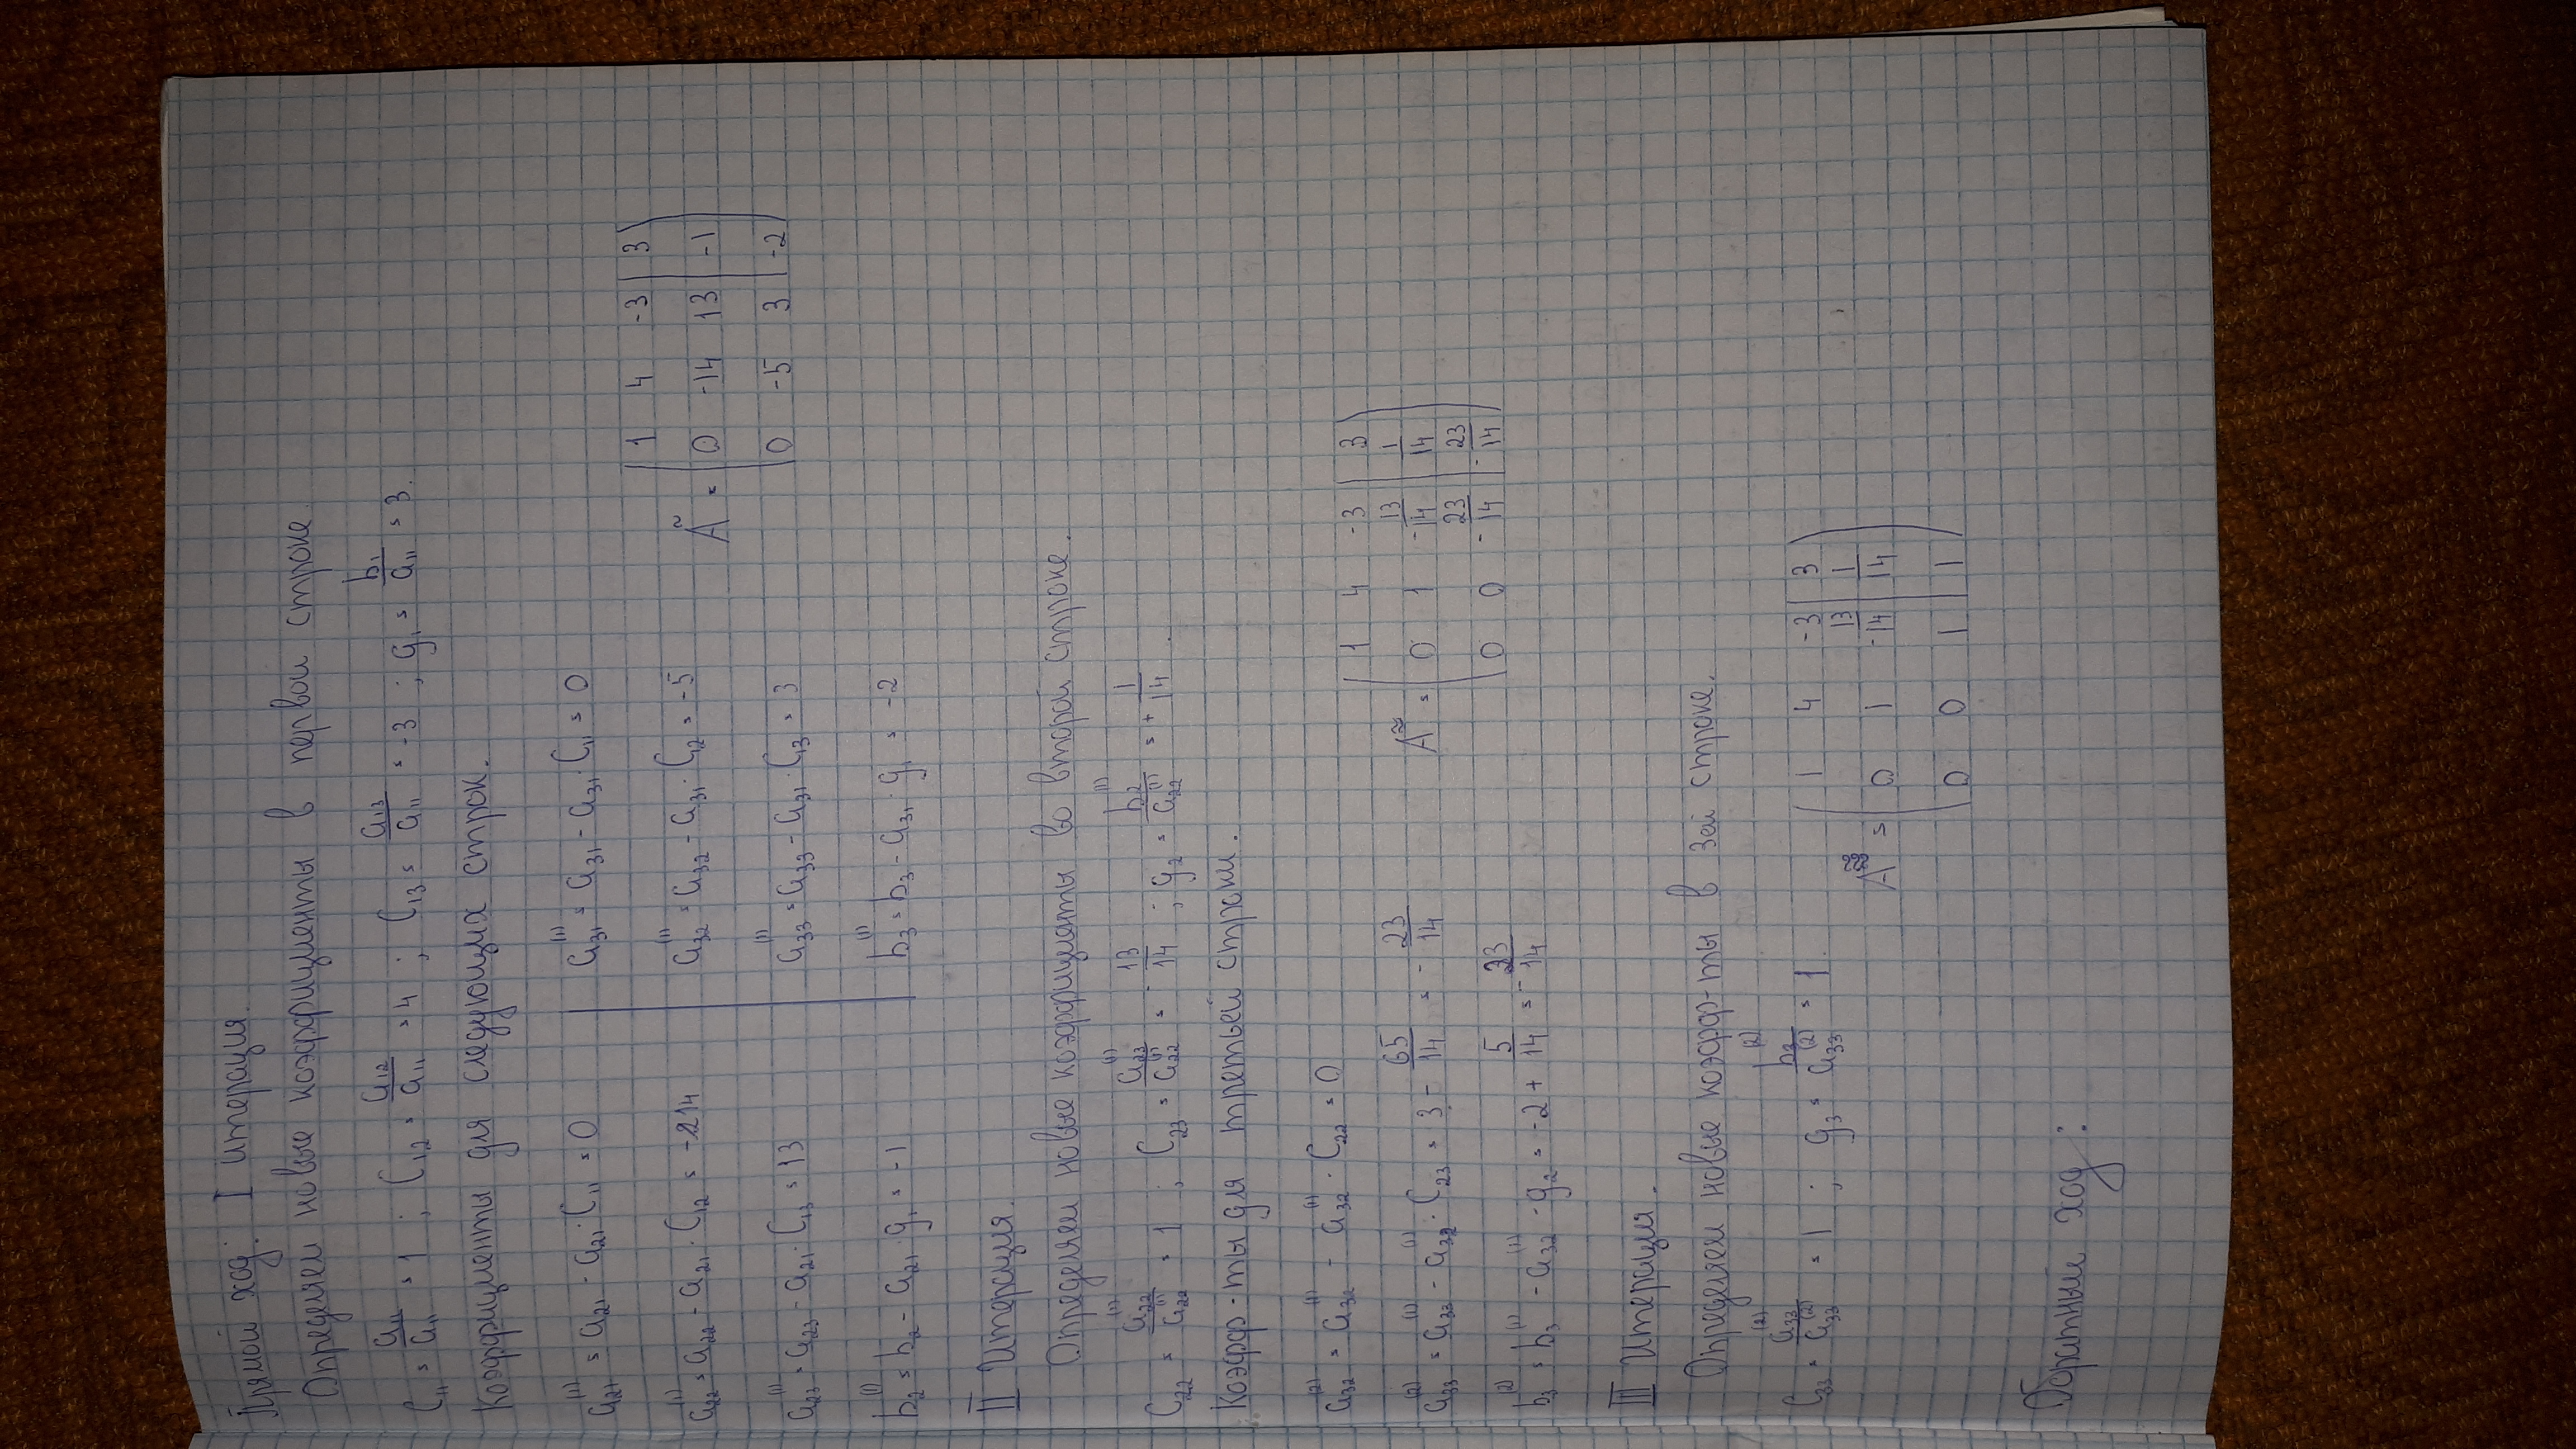 Прямой ход: I итерация.
Определяем новые коэффициенты в первой строке.
C₁₁ = a₁₁/a₁₁ = 1 ; C₁₂ = a₁₂/a₁₁ = 4 ; C₁₃ = a₁₃/a₁₁ = -3 ; g₁ = b₁/a₁₁ = 3.
Коэффициенты для следующих строк.
a₂₁⁽¹⁾ = a₂₁ - a₂₁·C₁₁ = 0
a₂₂⁽¹⁾ = a₂₂ - a₂₁·C₁₂ = -14
a₂₃⁽¹⁾ = a₂₃ - a₂₁·C₁₃ = 13
b₂⁽¹⁾ = b₂ - a₂₁·g₁ = -1
a₃₁⁽¹⁾ = a₃₁ - a₃₁·C₁₁ = 0
a₃₂⁽¹⁾ = a₃₂ - a₃₁·C₁₂ = -5
a₃₃⁽¹⁾ = a₃₃ - a₃₁·C₁₃ = 3
b₃⁽¹⁾ = b₃ - a₃₁·g₁ = -2
Ã =
1 4 -3 | 3
0 -14 13 | -1
0 -5 3 | -2
II Итерация.
Определяем новые коэффициенты во второй строке.
C₂₂ = a₂₂⁽¹⁾/a₂₂⁽¹⁾ = 1 ; C₂₃ = a₂₃⁽¹⁾/a₂₂⁽¹⁾ = -13/14 ; g₂ = b₂⁽¹⁾/a₂₂⁽¹⁾ = +1/14.
Коэфф-ты для третьей строки.
a₃₂⁽²⁾ = a₃₂⁽¹⁾ - a₃₂⁽¹⁾·C₂₂ = 0
a₃₃⁽²⁾ = a₃₃⁽¹⁾ - a₃₂⁽¹⁾·C₂₃ = 3 - 65/14 = -23/14
b₃⁽²⁾ = b₃⁽¹⁾ - a₃₂⁽¹⁾ - g₂ = -2 + 5/14 = -23/14
A ≈ =
1 4 -3 | 3
0 1 -13/14 | 1/14
0 0 -23/14 | -23/14
III Итерация.
Определяем новые коэфф-ты в 3ей строке.
C₃₃ = a₃₃⁽²⁾/a₃₃⁽²⁾ = 1 ; g₃ = b₃⁽²⁾/a₃₃⁽²⁾ = 1.
A =
1 4 -3 | 3
0 1 -13/14 | 1/14
0 0 1 | 1
Обратный ход: